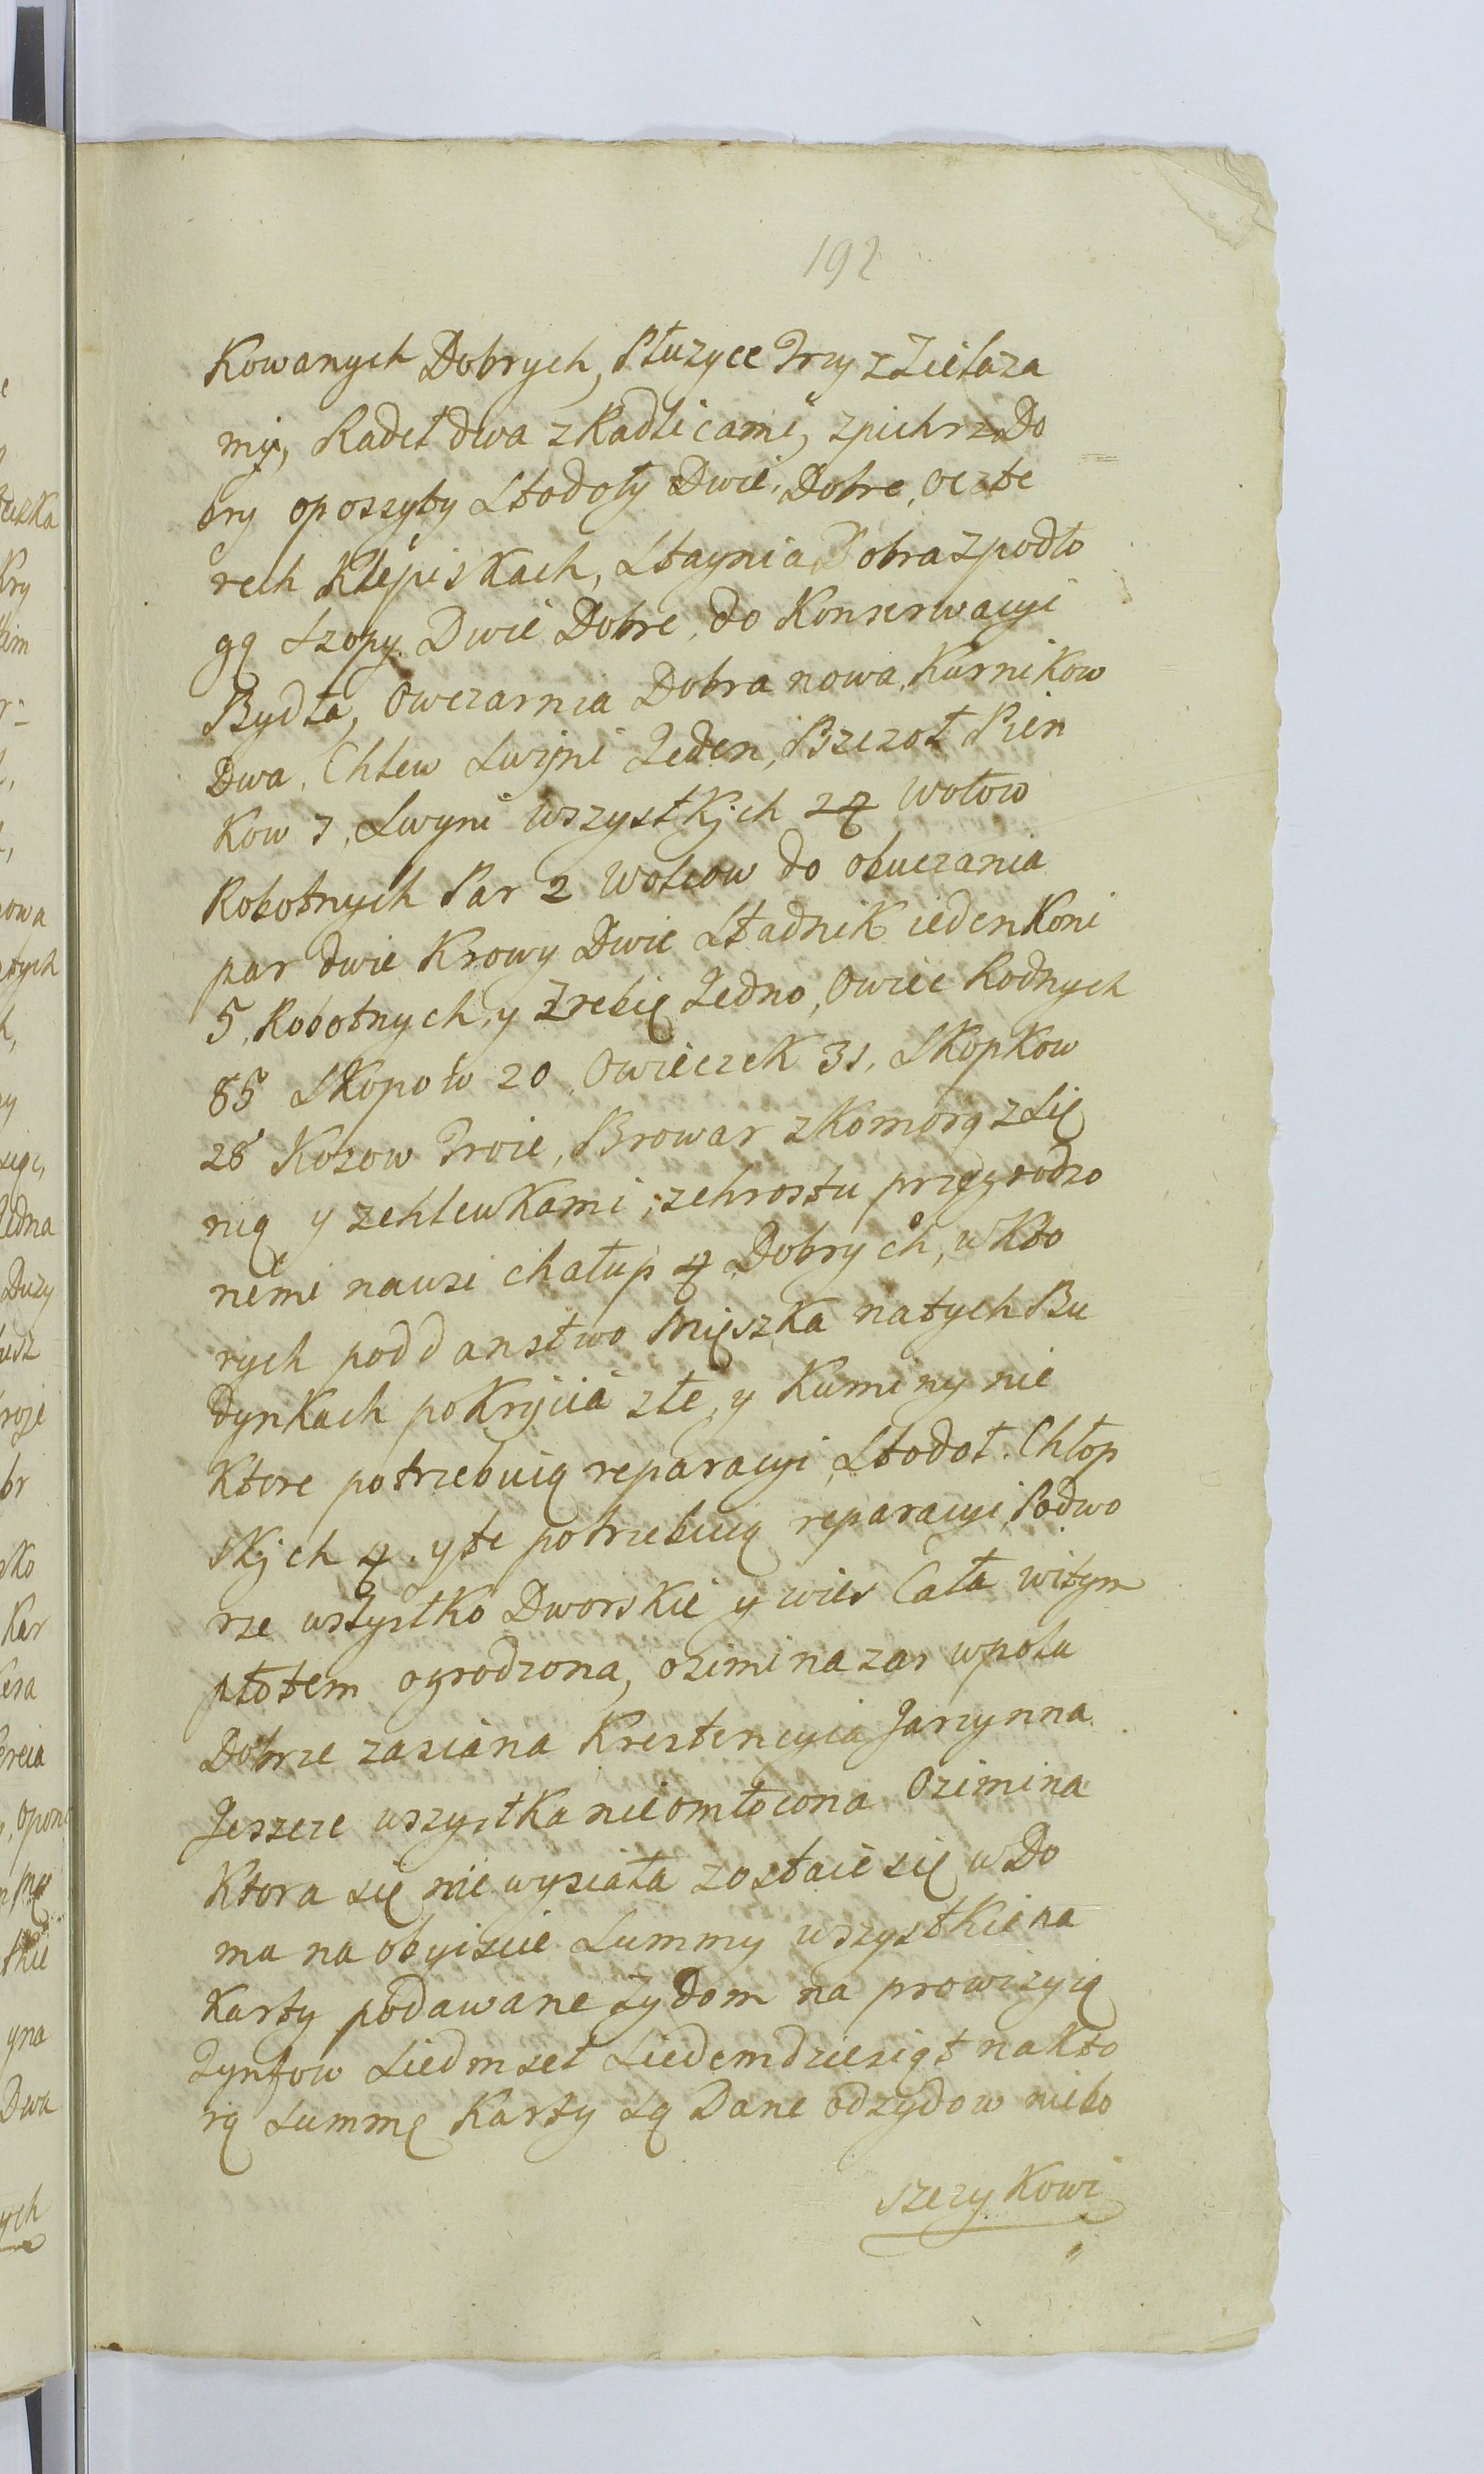 192
Kowanych Dobrych, Płuzyce Trzy z Zielaza
my, Radeł dwa z Radlicami, zpichrz Do
bry oposzyty Stodoły Dwie, Dobre, oczte
rech Klepiskach, Staynia Dobra zpodło
gą Szopy Dwie Dobre, do Konserwacyi
Bydła, Owczarnia Dobra nowa, Kurnikow
Dwa, Chlew Swyni Jeden, Pszczoł Pien
Kow 7, Swyni wszystkych 24 Wołow
Robotnych Par 2 Wolcow do obuczania
par dwie Krowy Dwie Stadnik ieden Koni
5, Robotnych, y Zrebię Jedno, Owiec Rodnych
85 Skopow 20, Owieczek 31, Skopkow
28 Kozow Troie, Browar z Komorą z Się
nią y zchlewkami, zchrostu przegrodzo
nemi nawsi chałup 4 Dobrych, w Kto
rych poddanstwo Mięszka natych Bu
dynkach pokrycia złe, y Kuminy nie
Ktore potrzebuią reparacyi, Stodoł Chłop
skych 4. yte potrzebuią reparacyi Podwo
rze wszystko Dworskie y wies Cała witym
płotem ogrodzona, ozimina zas wpolu
Dobrze zasiana Krestencyia Jarzynna
Jeszcze wszystka nieomłocona Ozimina
Ktora się nie wysiała zostaie się w Do
ma na obyiscie Summy wszystkie na
Karty podawane Zydom na prowizyią
Tynfow Siedmset Siedemdziesiąt nakto
rą Summę Karty Są Dane odzydow niebo
szczykowi